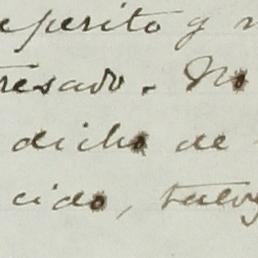 eperito y
resado. No
dicho de
cido, talvez